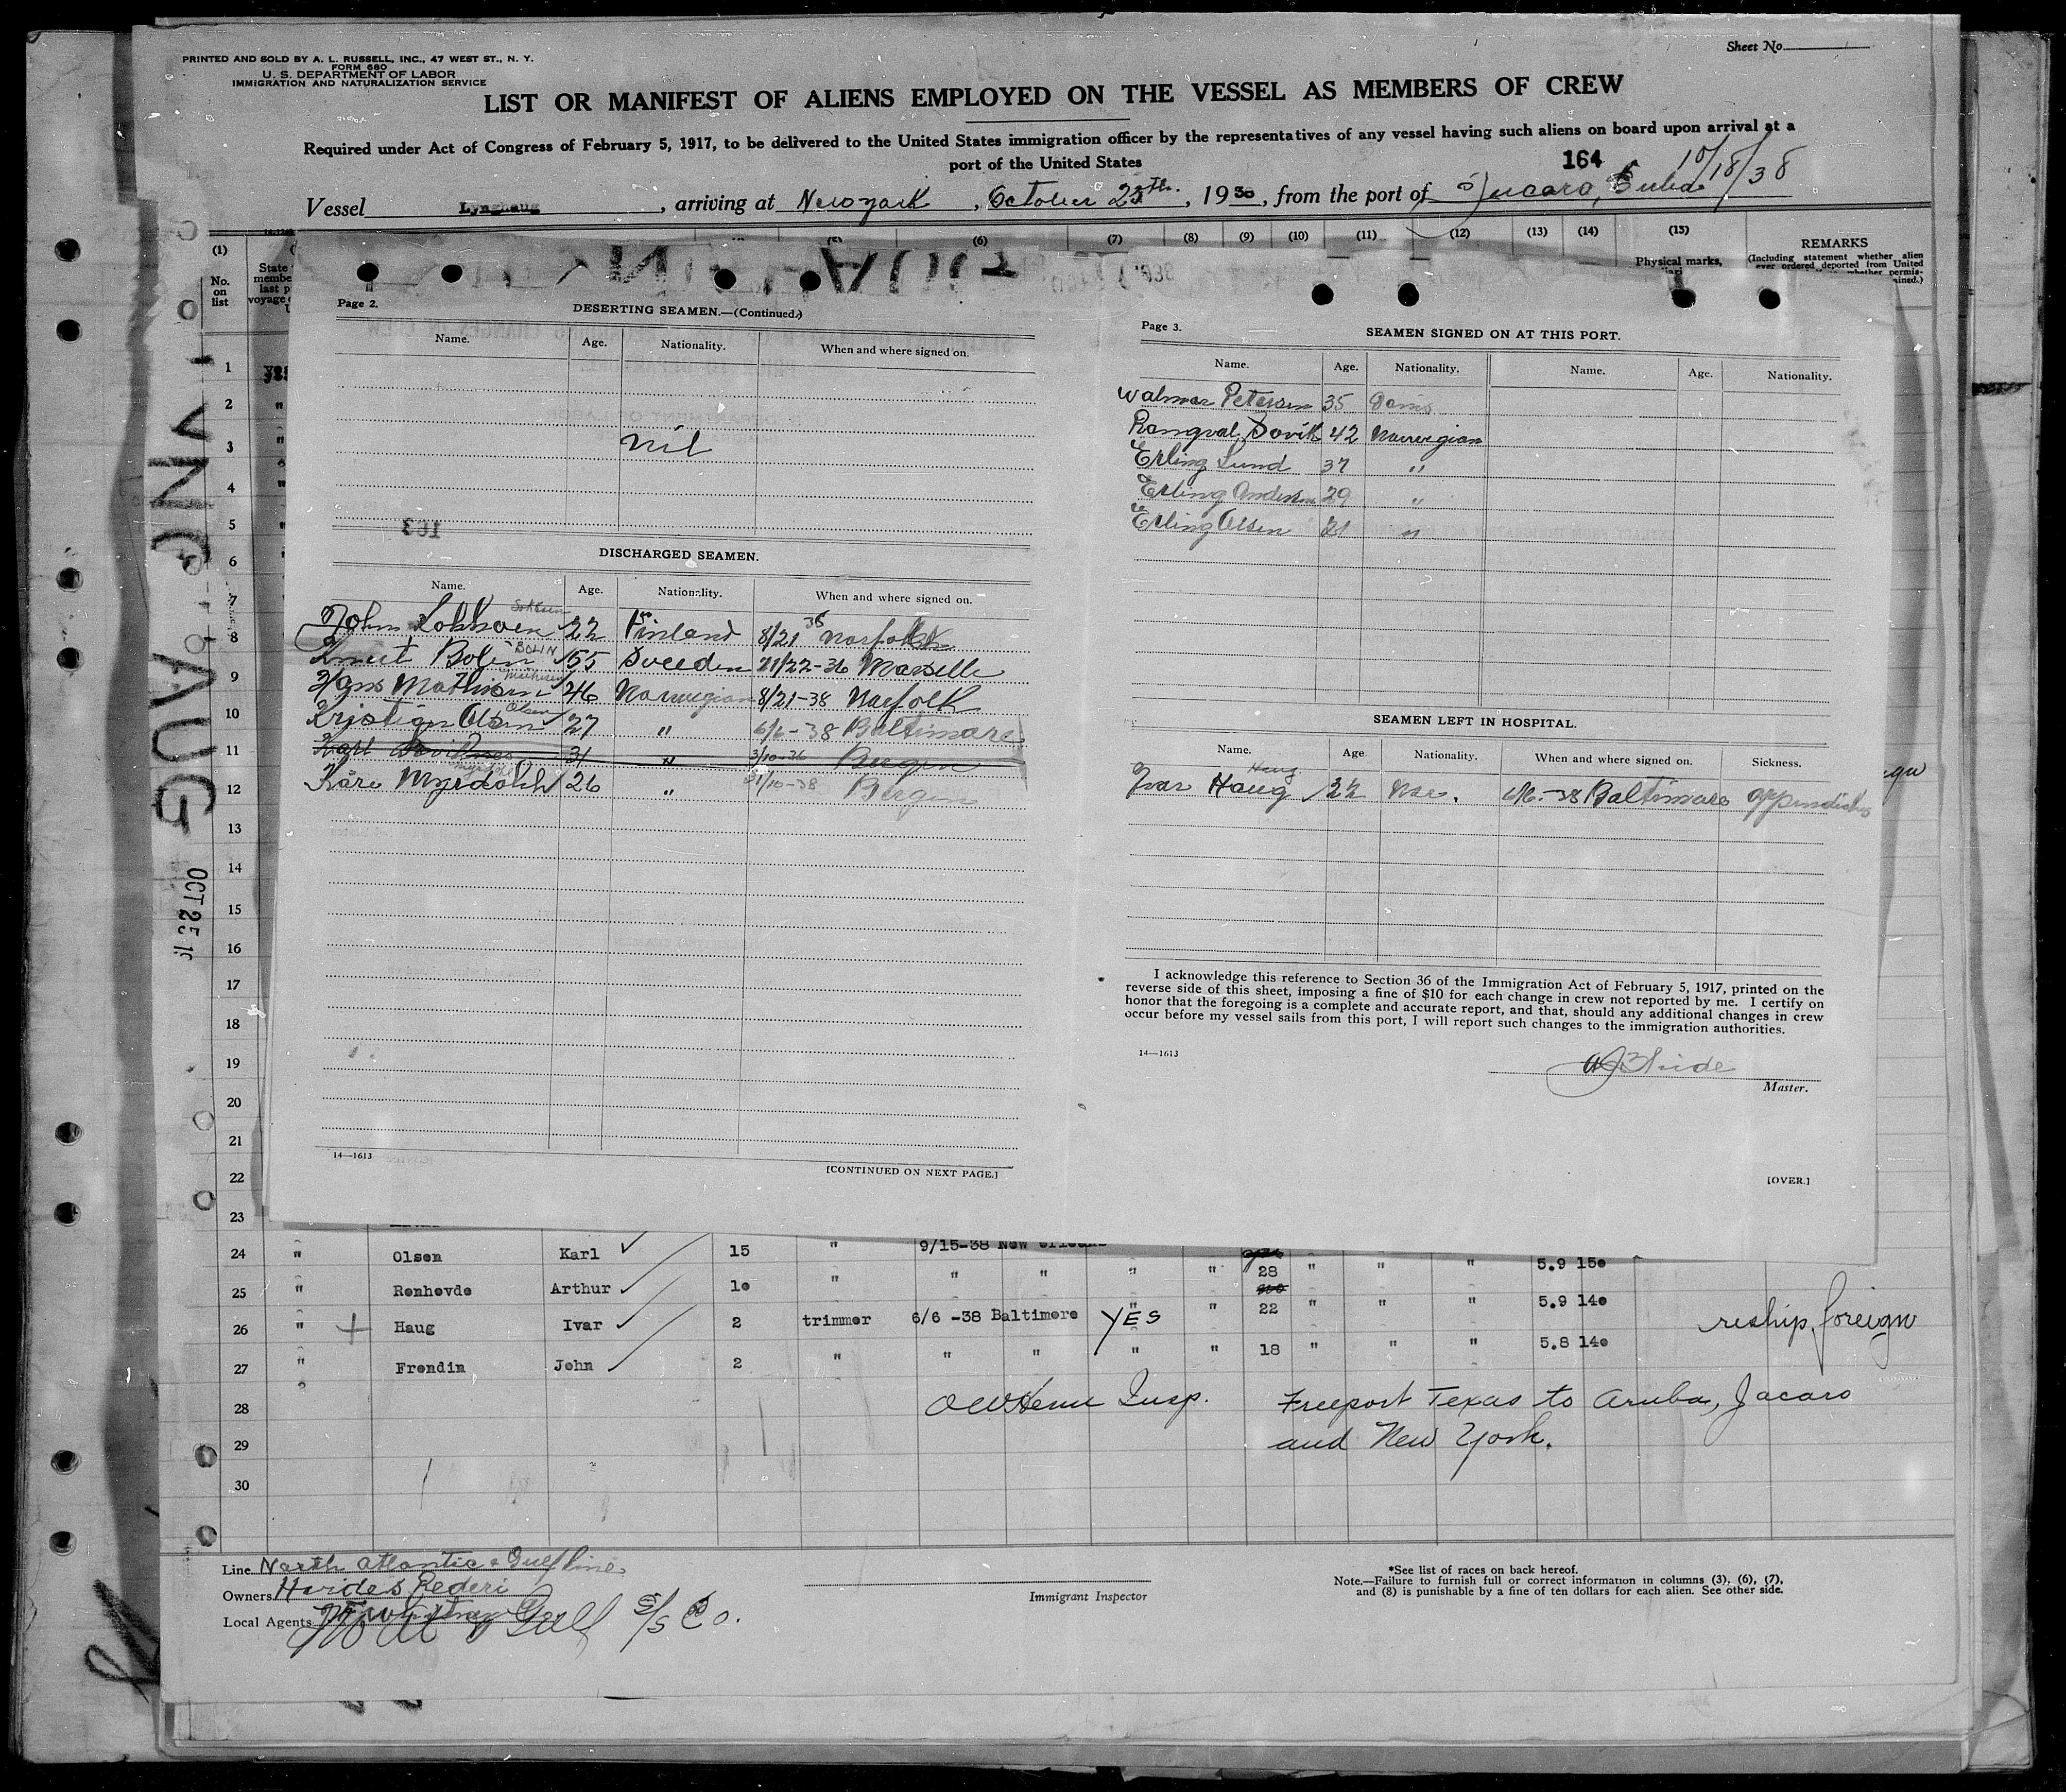 Sheet No.
PRINTED AND SOLD BY A. L. RUSSELL, INC., 47 WEST ST., N. Y.
FORM 680
U. S. DEPARTMENT OF LABOR
IMMIGRATION AND NATURALIZATION SERVICE
LIST OR MANIFEST OF ALIENS EMPLOYED ON THE VESSEL AS MEMBERS OF CREW
Required under Act of Congress of February 5, 1917, to be delivered to the United States immigration officer by the representatives of any vessel having such aliens on board upon arrival at a
port of the United States
164
10/18/38
Vessel Lynghaug, arriving at New York, October 25th., 1938, from the port of Jucaro, Cuba
(1) (5) (6) (7) (8) (9) (10) (11) (12) (13) (14) (15)
No. on list
Physical marks,
REMARKS
(Including statement whether alien
ever ordered deported from United
Page 2.
DESERTING SEAMEN.—(Continued.)
Name. Age. Nationality. When and where signed on.
nil
163
DISCHARGED SEAMEN.
Name. Age. Nationality. When and where signed on.
John 22 Finland 8/21 38 Norfolk
Knut Bolin BOLIN 55 Sweeden 21/22-36 Marselle
Hans Mathisen Mathisen 46 Norwegian 8/21-38 Norfolk
Kristian Olsen Olsen 27 " 6/6-38 Baltimore
Karl 31 " 3/10-36 Bergen
Kåre Myrdahl 26 " 31/10-38 Bergen
14—1613
[CONTINUED ON NEXT PAGE.]
Page 3.
SEAMEN SIGNED ON AT THIS PORT.
Name. Age. Nationality. Name. Age. Nationality.
Walmar Petersen 35 Danis
Rangval Sovik 42 Norwegian
Erling Lund 37 "
Erling Andersen 29 "
Erling Olsen 21 "
SEAMEN LEFT IN HOSPITAL.
Name. Age. Nationality. When and where signed on. Sickness.
Haug
Ivar Haug 22 Nor. 6/6.-38 Baltimore appendicitis
I acknowledge this reference to Section 36 of the Immigration Act of February 5, 1917, printed on the
reverse side of this sheet, imposing a fine of $10 for each change in crew not reported by me. I certify on
honor that the foregoing is a complete and accurate report, and that, should any additional changes in crew
occur before my vessel sails from this port, I will report such changes to the immigration authorities.
14—1613
Master.
[OVER.]
LYNGHAUG
OCT 25
1
2
3
4
5
6
7
8
9
10
11
12
13
14
15
16
17
18
19
20
21
22
23
24 " Olsen Karl 15 " 9/15-38 New Orleans 5.9 150
25 " Renhovde Arthur 10 " " " " " 28 " " " 5.9 140
26 " Haug Ivar 2 trimmer 6/6 -38 Baltimore YES " 22 " " " 5.8 140 reship foreign
27 " Frendin John 2 " " " " " 18 " " "
28 Insp. Freeport Texas to Aruba, Jacaro
29 and New York.
30
Line North Atlantic & Gulf Line
Owners Haides Rederi
Local Agents North Atl & Gulf S/S Co.
Immigrant Inspector
*See list of races on back hereof.
Note.—Failure to furnish full or correct information in columns (3), (6), (7),
and (8) is punishable by a fine of ten dollars for each alien. See other side.